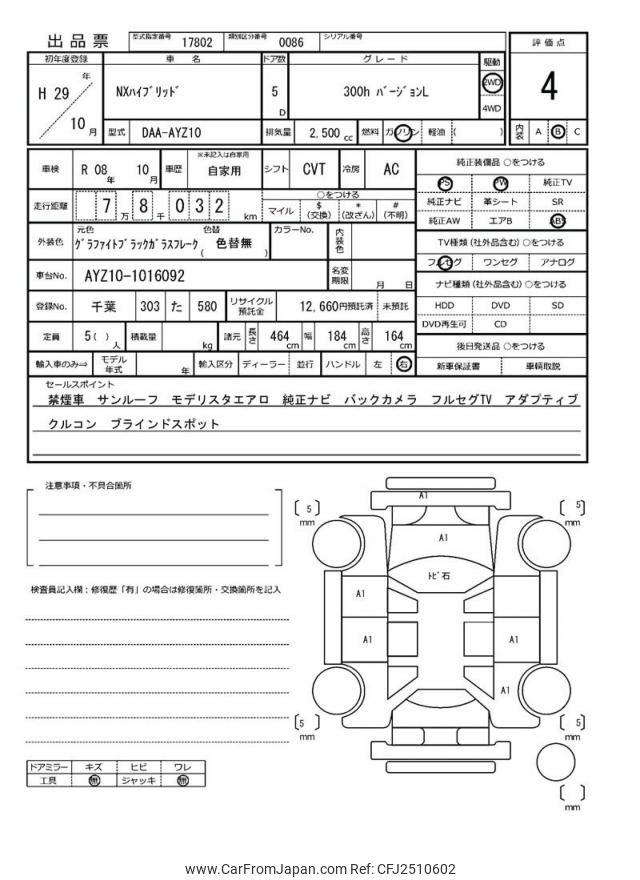 出品票 型式指定番号 17802 類別区分番号 0086 シリアル番号
初年度登録 車 名 ドア数 グレード 駆動 評価点
H 29 年 10 月 NXハイブリッド 5 D 300h バージョンL 2WD 4WD 4
型式 DAA-AYZ10 排気量 2,500 cc 燃料 ガソリン 軽油 ( ) 内装 A B C
車検 R 08 年 10 月 車歴 ※未記入は自家用 自家用 シフト CVT 冷房 AC
走行距離 7 万 8 千 0 3 2 km ○をつける マイル $ (交換) * (改ざん) # (不明)
外装色 元色 グラファイトブラックガラスフレーク 色替 ( 色替無 ) カラーNo. 内装色
車台No. AYZ10-1016092 名変期限 月 日
登録No. 千葉 303 た 580 リサイクル預託金 12,660円預託済 未預託
定員 5 ( ) 人 積載量 kg 諸元 長さ 464 cm 幅 184 cm 高さ 164 cm
輸入車のみ⇒ モデル年式 年 輸入区分 ディーラー 並行 ハンドル 左 右
純正装備品 ○をつける
PS PW 純正TV
純正ナビ 革シート SR
純正AW エアB ABS
TV種類 (社外品含む) ○をつける
フルセグ ワンセグ アナログ
ナビ種類 (社外品含む) ○をつける
HDD DVD SD
DVD再生可 CD
後日発送品 ○をつける
新車保証書 車輌取説
セールスポイント
禁煙車 サンルーフ モデリスタエアロ 純正ナビ バックカメラ フルセグTV アダプティブ
クルコン ブラインドスポット
注意事項・不具合箇所
検査員記入欄:修復歴「有」の場合は修復箇所・交換箇所を記入
ドアミラー キズ ヒビ ワレ
工具 無 ジャッキ 無
A1
[ 5 ] mm
[ 5 ] mm
A1
トビ石
A1
A1 A1
A1
[ 5 ] mm
[ 5 ] mm
[ ] mm
www.CarFromJapan.com Ref: CFJ2510602